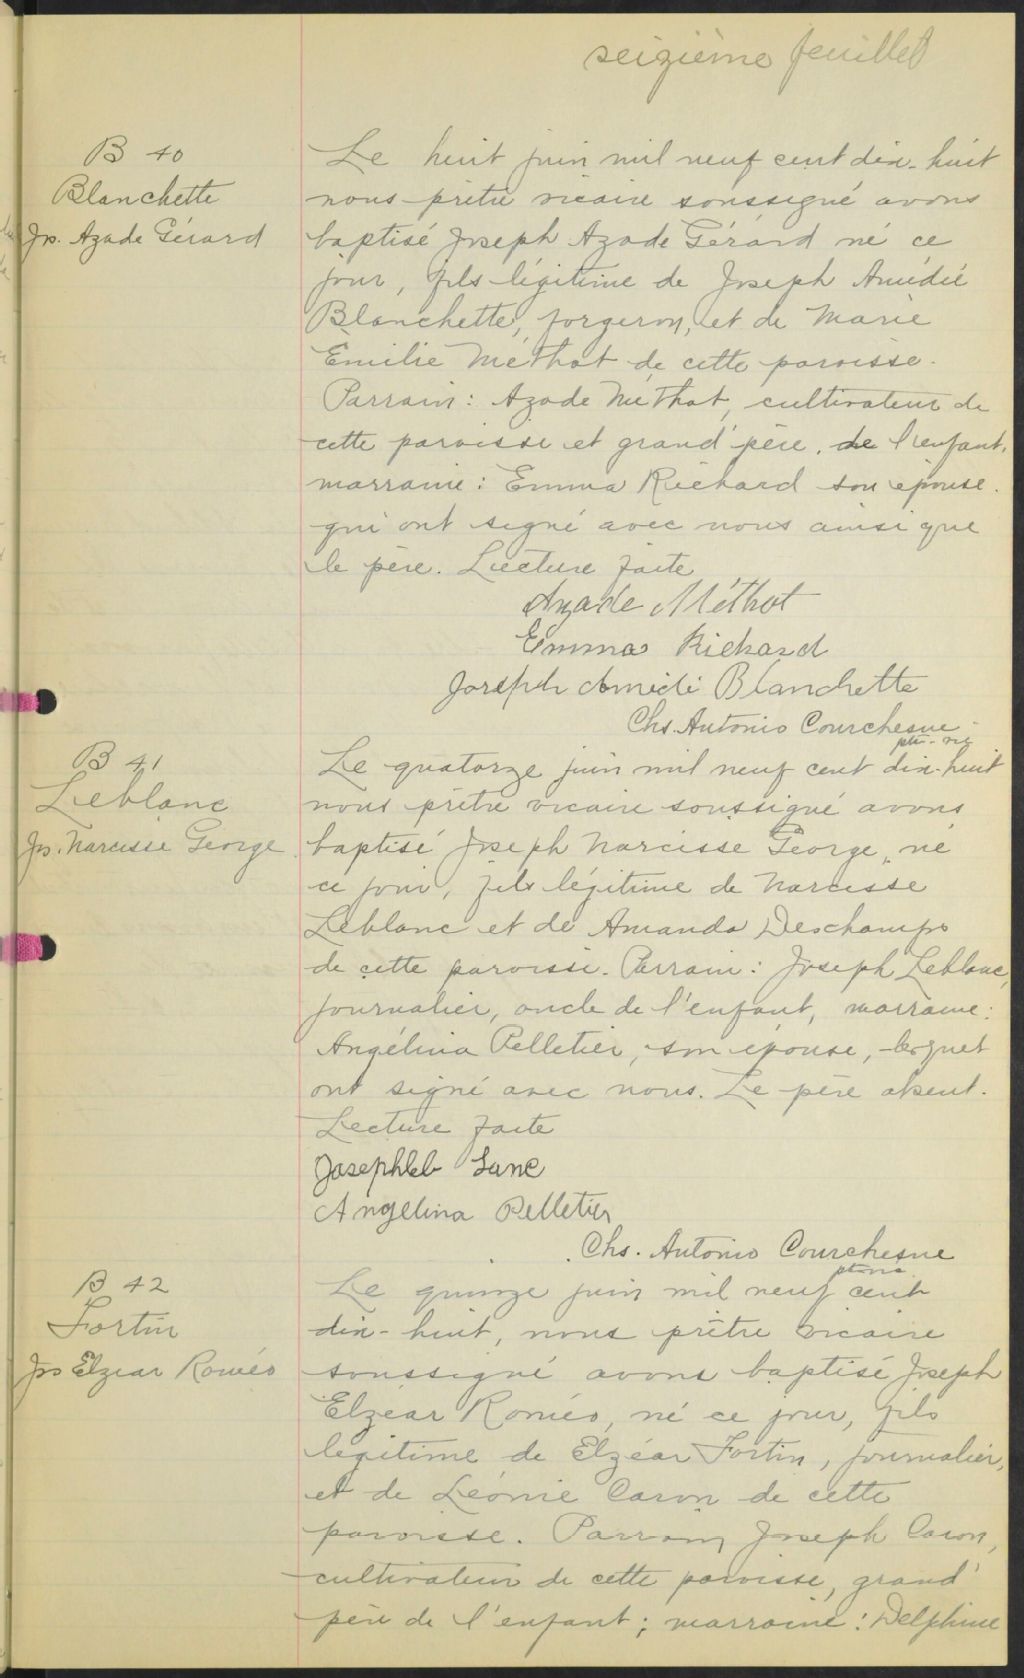 seizième feuillet
B 40
Blanchette
Js. Azade Gérard
Le huit juin mil neuf cent dix-huit
nous prêtre vicaire soussigné avons
baptisé Joseph Azade Gérard né ce
jour, fils légitime de Joseph Amédée
Blanchette, forgeron, et de Marie
Emilie Méthot de cette paroisse.
Parrain: Azade Méthot, cultivateur de
cette paroisse et grand'père de l'enfant,
marraine: Emma Richard son épouse
qui ont signé avec nous ainsi que
le père. Lecture faite
Azade Méthot
Emma Richard
Joseph Amédé Blanchette
Chs. Antonio Courchesne
ptr. vic
B 41
Leblanc
Js. Narcisse George
Le quatorze juin mil neuf cent dix-huit
nous prêtre vicaire soussigné avons
baptisé Joseph Narcisse George, né
ce jour, fils légitime de Narcisse
Leblanc et de Amanda Deschamps
de cette paroisse. Parrain: Joseph Leblanc,
journalier, oncle de l'enfant, marraine:
Angélina Pelletier, son épouse,
ont signé avec nous. Le père absent.
Lecture faite
Joseph Leb lanc
Angelina Pelletier
Chs. Antonio Courchesne
ptre vic.
B 42
Fortin
Js Elzéar Roméo
Le quinze juin mil neuf cent
dix-huit, nous prêtre vicaire
soussigné avons baptisé Joseph
Elzéar Roméo, né ce jour, fils
légitime de Elzéar Fortin, journalier,
et de Léonie Caron de cette
paroisse. Parrain Joseph Caron,
cultivateur de cette paroisse, grand'
père de l'enfant; marraine: Delphine